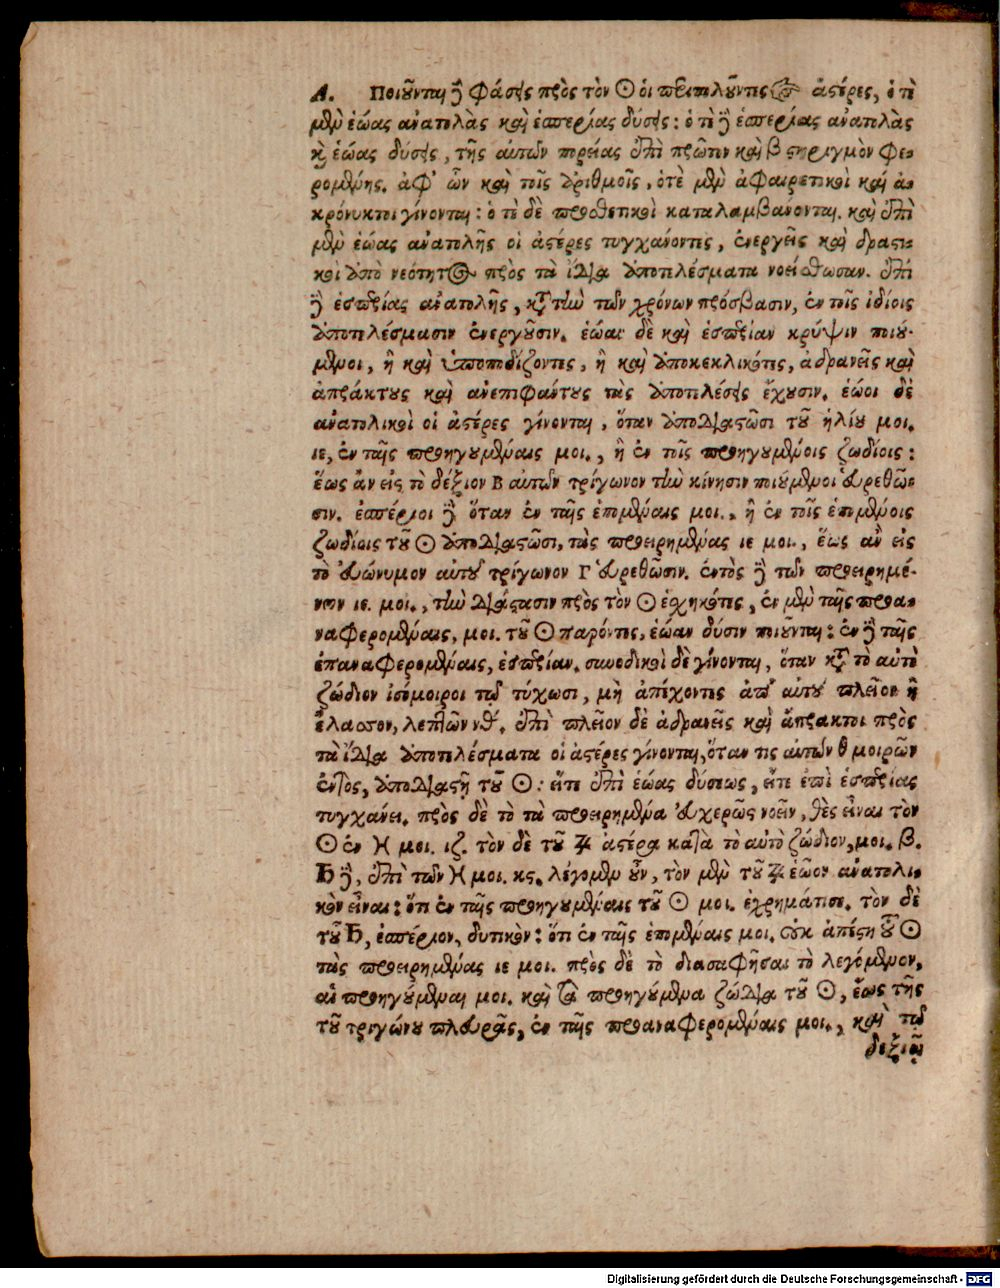 Α. Ποιοῦνται δὲ φάσεις πρὸς τὸν ☉ οἱ περιπολοῦντες ἀστέρες, ὁτὲ
μὲν ἑώας ἀνατολὰς καὶ ἑσπερίας δύσεις: ὁτὲ δὲ ἑσπερίας ἀνατολὰς
κὶ ἑώας δύσεις, τῆς αὐτῶν πορείας ἐπὶ πρῶτον καὶ β στηριγμὸν φε-
ρομένης. ἀφ' ὧν καὶ τοῖς ἀριθμοῖς, ὁτὲ μὲν ἀφαιρετικοὶ καὶ ἀ-
κρόνυκτοι γίνονται: ὁτὲ δὲ προσθετικοὶ καταλαμβάνονται. καὶ ἐπὶ
μὲν ἑώας ἀνατολῆς οἱ ἀστέρες τυγχάνοντες, ἐνεργεῖς καὶ δραστι-
κοὶ ἀπὸ νεότητος πρὸς τὰ ἴδια ἀποτελέσματα νοείσθωσαν. ἐπὶ
δὲ ἑσπερίας ἀνατολῆς, κατὰ τὴν τῶν χρόνων πρόσβασιν, ἐν τοῖς ἰδίοις
ἀποτελέσμασιν ἐνεργοῦσιν. ἑώαν δὲ καὶ ἑσπερίαν κρύψιν ποιού-
μενοι, ἢ καὶ ὑποποδίζοντες, ἢ καὶ ἀποκεκλικότες, ἀδρανεῖς καὶ
ἀπράκτους καὶ ἀνεπιφάντους τὰς ἀποτελέσεις ἔχουσιν. ἑῶοι δὲ
ἀνατολικοὶ οἱ ἀστέρες γίνονται, ὅταν ἀποδιαστῶσι τοῦ ἡλίου μοι.
ιε, ἐν ταῖς προηγουμέναις μοι., ἢ ἐν τοῖς προηγουμένοις ζωδίοις:
ἕως ἂν εἰς τὸ δέξιον Β αὐτῶν τρίγωνον τὴν κίνησιν ποιούμενοι εὑρεθῶ-
σιν. ἑσπέριοι δὲ ὅταν ἐν ταῖς ἑπομέναις μοι., ἢ ἐν τοῖς ἑπομένοις
ζωδίοις τοῦ ☉ ἀποδιαστῶσι, τὰς προειρημένας ιε μοι., ἕως ἂν εἰς
τὸ εὐώνυμον αὐτοῦ τρίγωνον Γ εὑρεθῶσιν. ἐντὸς δὲ τῶν προειρημέ-
νων ιε. μοι., τὴν διάστασιν πρὸς τὸν ☉ ἐσχηκότες, ἐν μὲν ταῖς προα-
ναφερομέναις, μοι. τοῦ ☉ παρόντες, ἑώαν δύσιν ποιοῦνται: ἐν δὲ ταῖς
ἐπαναφερομέναις, ἑσπερίαν. συνοδικοὶ δὲ γίνονται, ὅταν κατὰ τὸ αὐτὸ
ζώδιον ἰσόμοιροι τῷ τύχωσι, μὴ ἀπέχοντες ἀπ' αὐτοῦ πλεῖον ἢ
ἔλασσον, λεπτῶν νθ. ἐπὶ πλεῖον δὲ ἀδρανεῖς καὶ ἄπρακτοι πρὸς
τὰ ἴδια ἀποτελέσματα οἱ ἀστέρες γίνονται, ὅταν τις αὐτῶν θ μοιρῶν
ἐντὸς, ἀποδιαστῇ τοῦ ☉: εἴτε ἐπὶ ἑώας δύσεως, εἴτε ἐπὶ ἑσπερίας
τυγχάνει. πρὸς δὲ τὸ τὰ προειρημένα εὐχερῶς νοεῖν, θὲς εἶναι τὸν
☉ ἐν ♓ μοι. ιζ. τὸν δὲ τοῦ ♃ ἀστέρα κατὰ τὸ αὐτὸ ζώδιον, μοι. β.
♄ δὲ, ἐπὶ τῶν ♓ μοι. κς. λέγομεν οὖν, τὸν μὲν τοῦ ♃ ἑῶον ἀνατολι-
κὸν εἶναι: ὅτι ἐν ταῖς προηγουμέναις τοῦ ☉ μοι. ἐχρημάτισε. τὸν δὲ
τοῦ ♄, ἑσπέριον, δυτικὸν: ὅτι ἐν ταῖς ἑπομέναις μοι. οὐκ ἀπέστη τοῦ ☉
τὰς προειρημένας ιε μοι. πρὸς δὲ τὸ διασαφῆσαι τὸ λεγόμενον,
αἱ προηγούμεναι μοι. καὶ τὰ προηγούμενα ζώδια τοῦ ☉, ἕως τῆς
τοῦ τριγώνου πλευρᾶς, ἐν ταῖς προαναφερομέναις μοι., καὶ τῷ
δεξιῷ